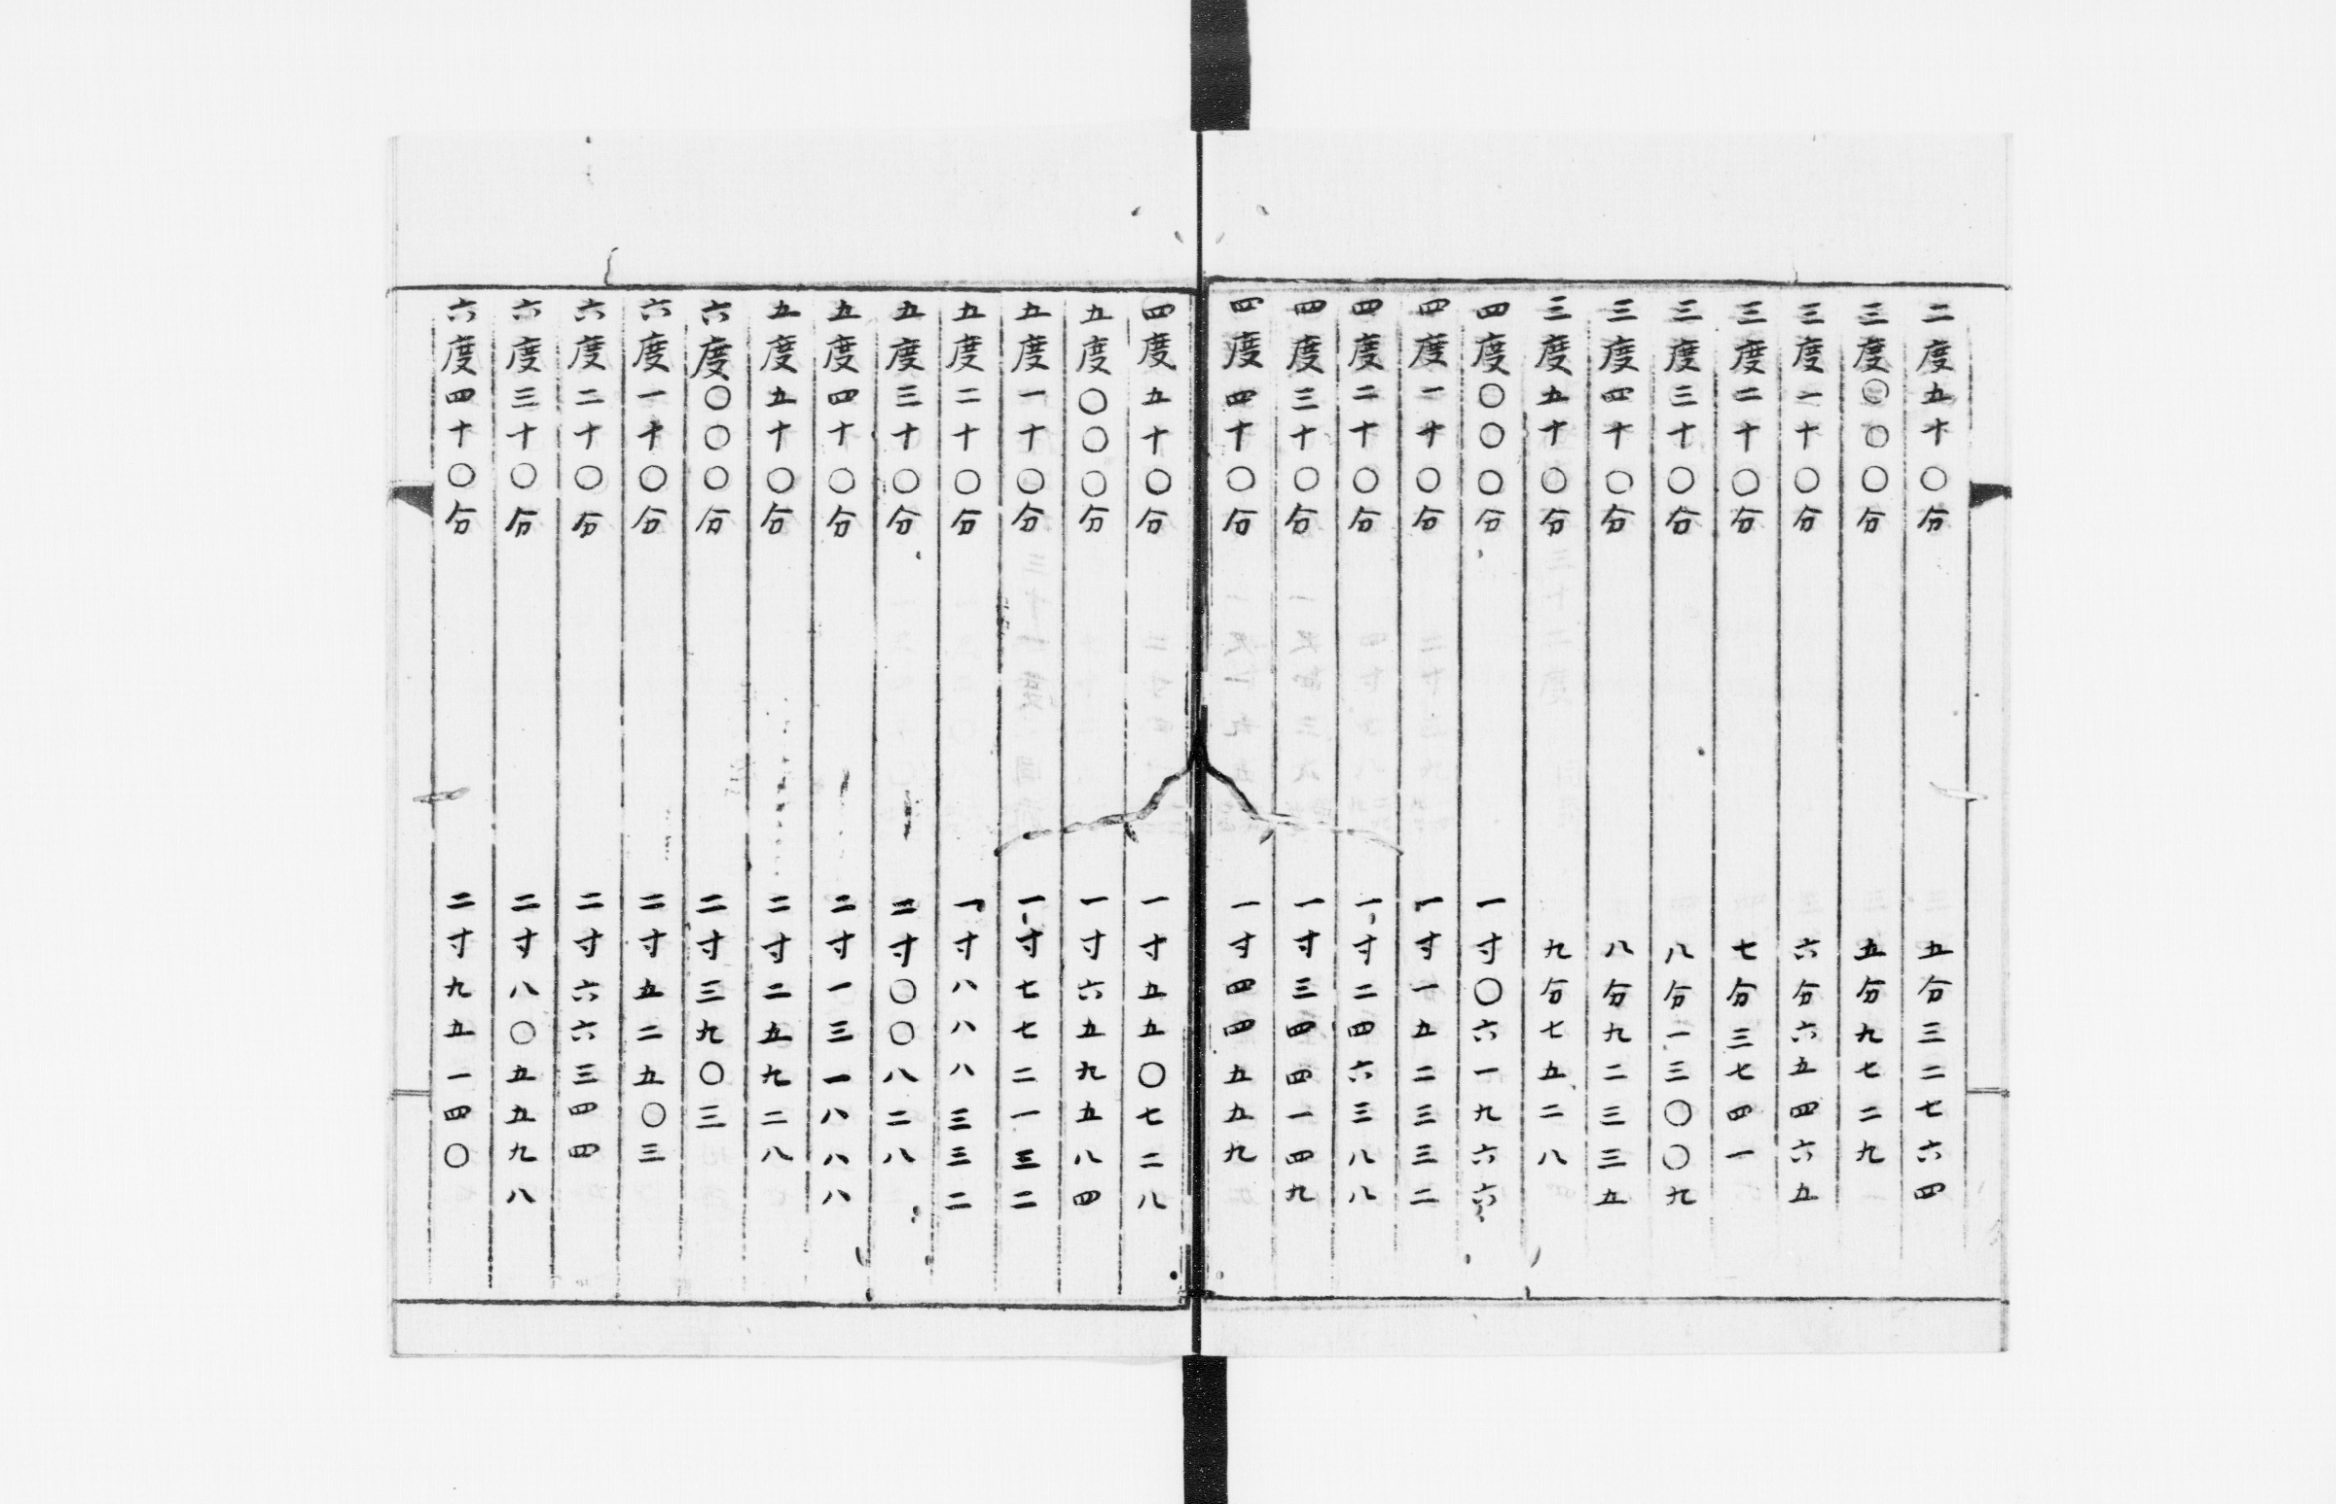 二度五十〇分 五分三二七六四
三度〇〇〇分 五分九七二九
三度一十〇分 六分六五四六五
三度二十〇分 七分三七四一
三度三十〇分 八分一三〇〇九
三度四十〇分 八分九二三三五
三度五十〇分 九分七五二八
四度〇〇〇分 一寸〇六一九六六
四度一十〇分 一寸一五二三三二
四度二十〇分 一寸二四六三八八
四度三十〇分 一寸三四四一四九
四度四十〇分 一寸四四五五九
四度五十〇分 一寸五五〇七二八
五度〇〇〇分 一寸六五九五八四
五度一十〇分 一寸七七二一三二
五度二十〇分 一寸八八八三三二
五度三十〇分 二寸〇〇八二八
五度四十〇分 二寸一三一八八八
五度五十〇分 二寸二五九二八
六度〇〇〇分 二寸三九〇三
六度一十〇分 二寸五二五〇三
六度二十〇分 二寸六六三四四
六度三十〇分 二寸八〇五五九八
六度四十〇分 二寸九五一四〇